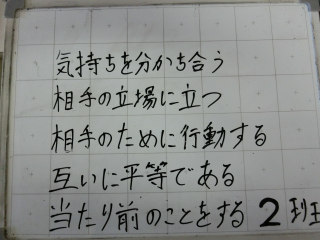 気持ちを分かち合う
相手の立場に立つ
相手のために行動する
互いに平等である
当たり前のことをする 2班